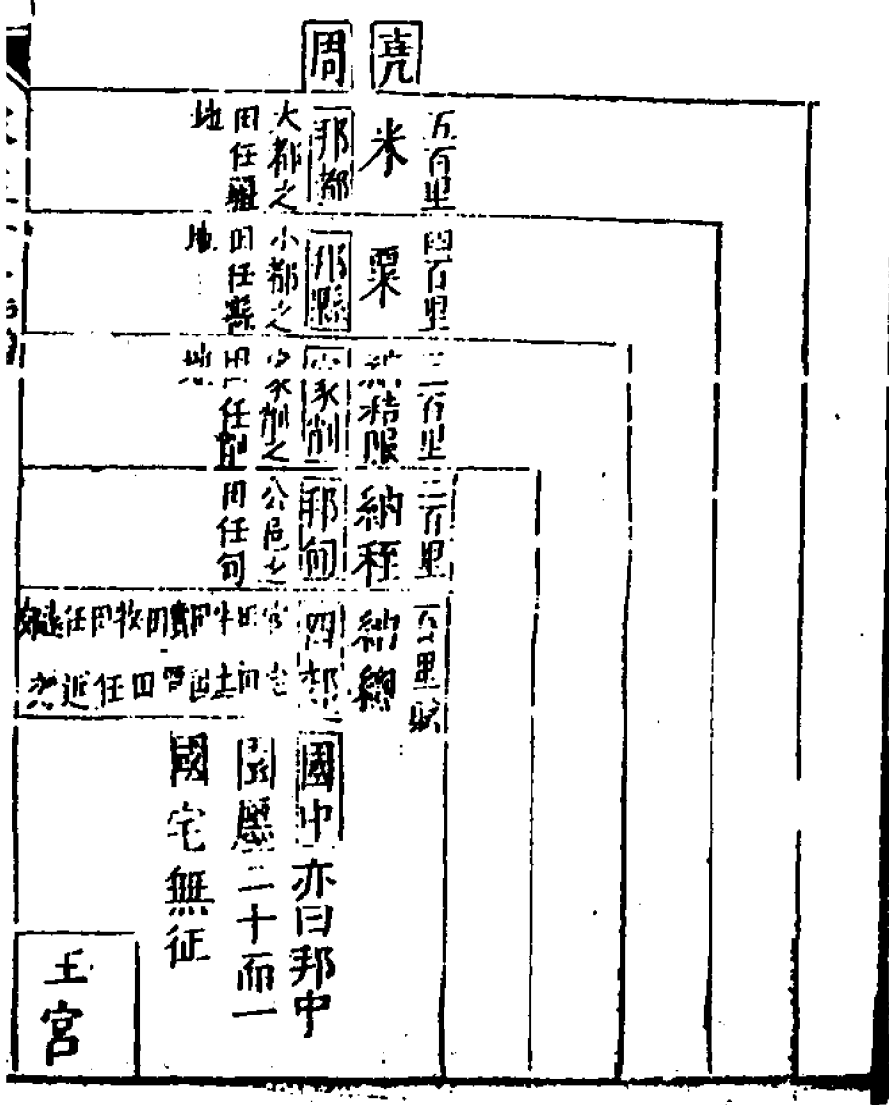 堯
周
五百里
米
邦都
大都之
田任畺
地
四百里
粟
邦縣
小都之
田任縣
地
三百里
納秸服
家削
家削之
田任削
地
二百里
納秷
邦甸
公邑之
田任甸
百里賦
納總
四郊
官田牛田賞田牧田任遠
近任田
國中亦曰邦中
園廛二十而一
國宅無征
王宮